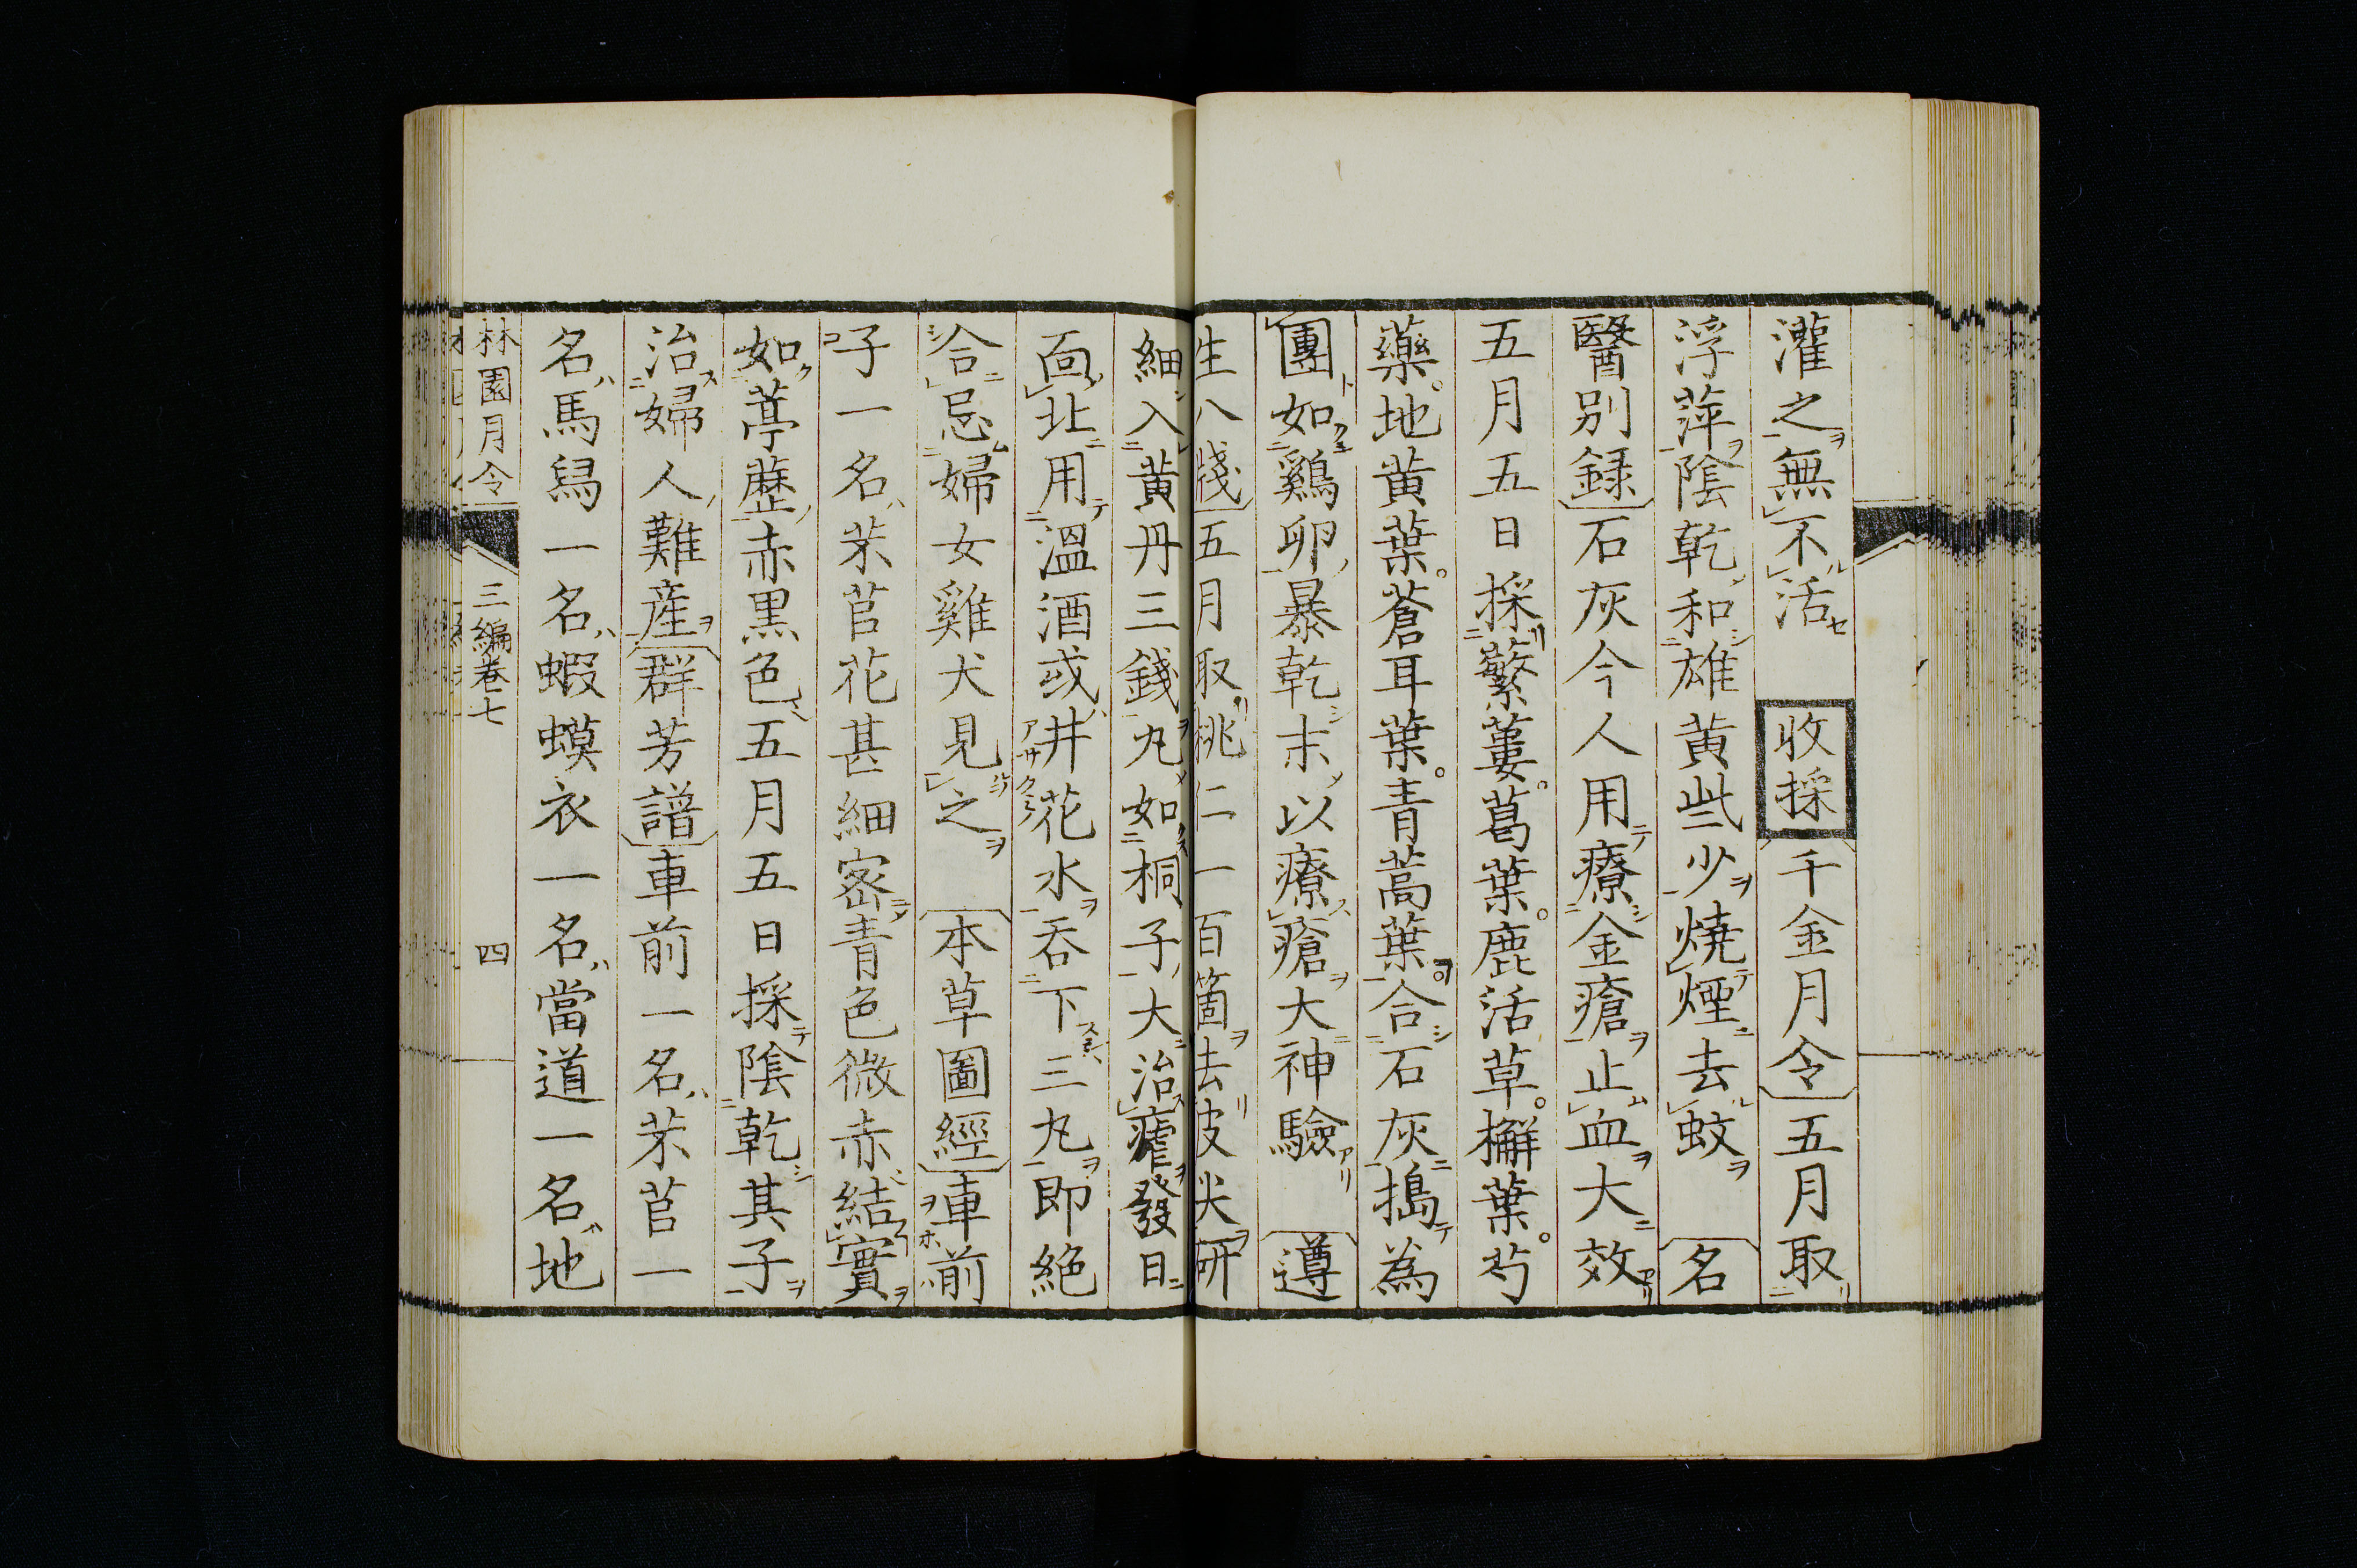 灌之無不活 收採 千金月令 五月取
浮萍陰乾和雄黃些少燒煙去蚊 名
醫別録 石灰今人用療金瘡止血大效
五月五日採蘩蔞。葛葉。鹿活草。檞葉。芍
藥。地黃葉。蒼耳葉。青蒿葉。合石灰搗為
團如鷄卵暴乾末以療瘡大神驗 遵
生八牋 五月取桃仁一百箇去皮尖研
細入黃丹三錢丸如桐子大治瘧發日
面北用溫酒或井花水吞下三丸即絕
合忌婦女雞犬見之 本草圖經 車前
子一名芣苢花甚細密青色微赤結實
如葶藶赤黑色五月五日採陰乾其子
治婦人難產 群芳譜 車前一名芣苢一
名馬舄一名蝦蟆衣一名當道一名地
林園月令 三編卷七 四